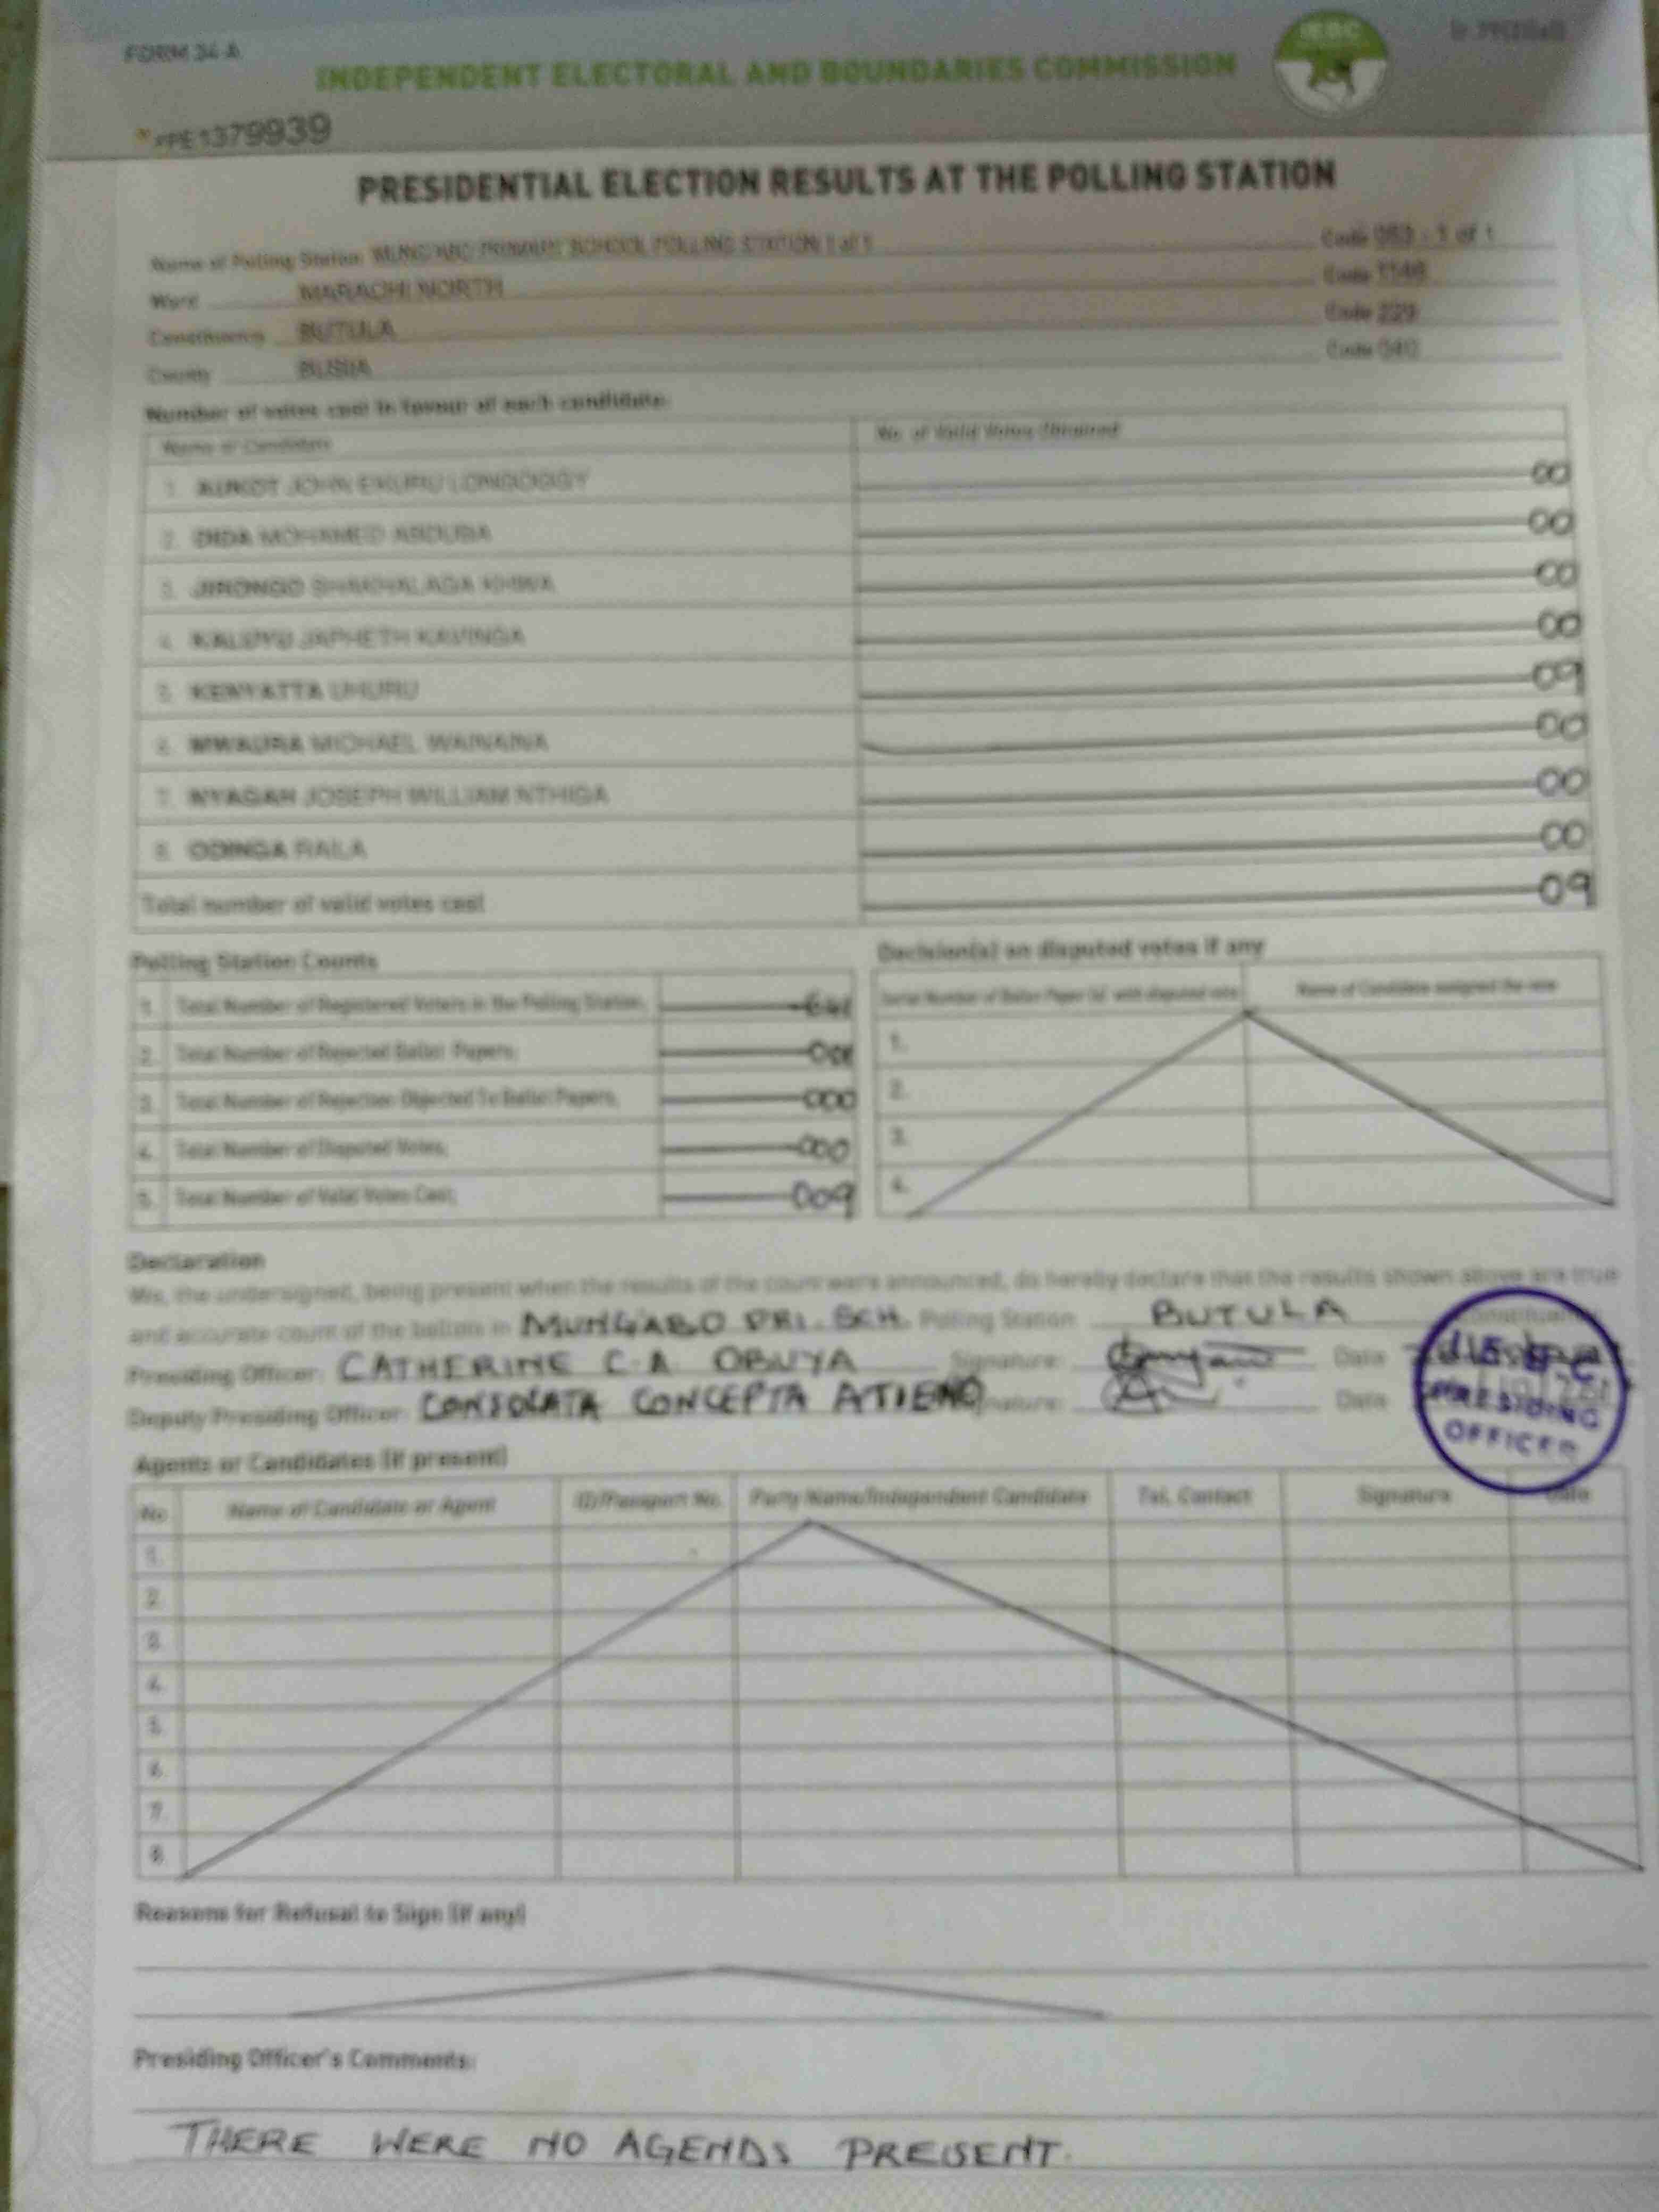 FORM 34 A
INDEPENDENT ELECTORAL AND BOUNDARIES COMMISSION
IEBC
1379939
PRESIDENTIAL ELECTION RESULTS AT THE POLLING STATION
Name of Polling Station PRIMARY SCHOOL POLLING STATION 1 of 1 Code 053 - 1 of 1
Ward MARACHI NORTH Code 1146
Constituency BUTULA Code 229
County BUSIA Code 040
Number of votes cast in favour of each candidate
Name of Candidate No. of Valid Votes Obtained
1. AUKOT JOHN EKURU LONGOGGY 00
2. DIDA MOHAMED ABDUBA 00
3. JIRONGO SHAKHALAGA KHWA 00
4. KALUYU JAPHETH KAVINGA 00
5. KENYATTA UHURU 09
6. MWAURA MICHAEL WAINAINA 00
7. NYAGAH JOSEPH WILLIAM NTHIGA 00
8. ODINGA RAILA 00
Total number of valid votes cast 09
Polling Station Counts
1. Total Number of Registered Voters in the Polling Station,
2. Total Number of Rejected Ballot Papers,
3. Total Number of Rejection Objected To Ballot Papers, 000
4. Total Number of Disputed Votes, 000
5. Total Number of Valid Votes Cast, 009
Decision(s) on disputed votes if any
Serial Number of Ballot Paper (s) with disputed vote Name of Candidate assigned the vote
1.
2.
3.
4.
Declaration
We, the undersigned, being present when the results of the count were announced, do hereby declare that the results shown above are true
and accurate count of the ballots in MUNGABO PRI. SCH. Polling Station BUTULA Constituency
Presiding Officer: CATHERINE C.A. OBUYA Signature: Date
Deputy Presiding Officer: CONSOLATA CONCEPTA ATIENO Signature: Date
I.E.B.C.
PRESIDING
OFFICER
Agents or Candidates (if present)
No. Name of Candidate or Agent ID/Passport No. Party Name/Independent Candidate Tel. Contact Signature Date
1.
2.
3.
4.
5.
6.
7.
8.
Reasons for Refusal to Sign (if any)
Presiding Officer's Comments:
THERE WERE NO AGENDS PRESENT.